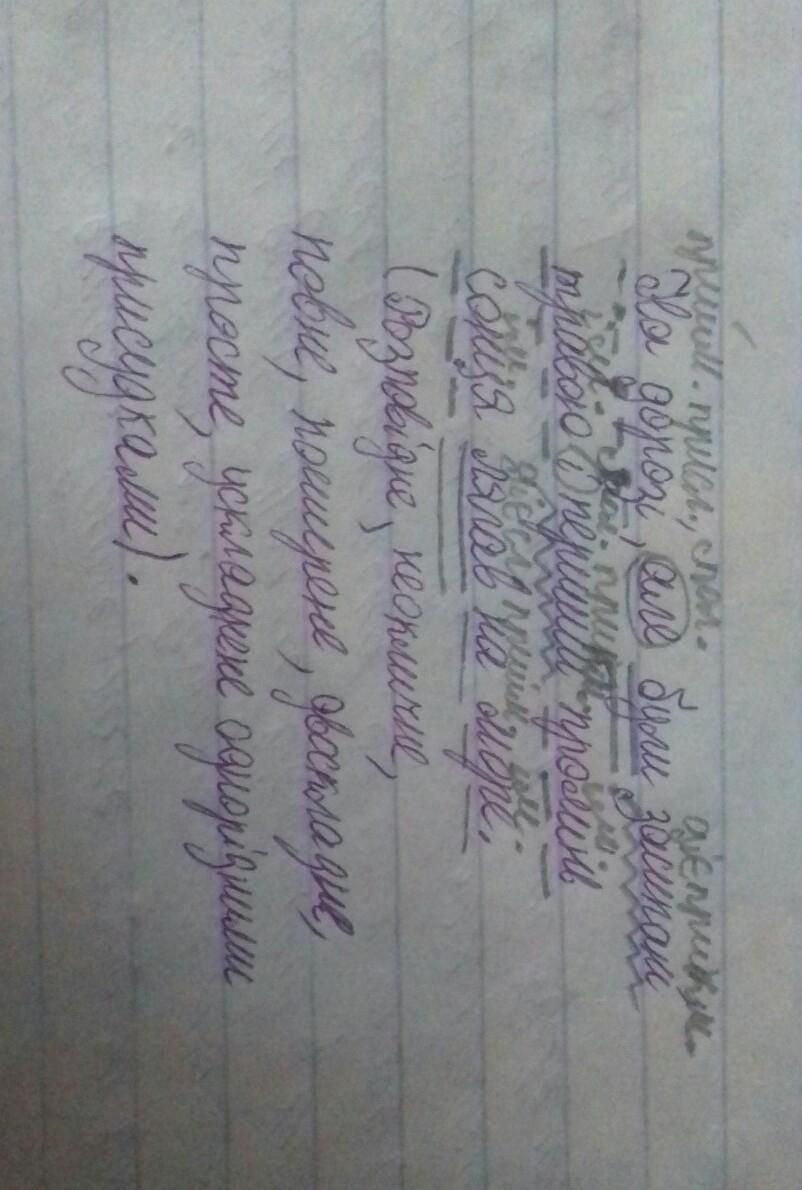 прийм. присл., спол. дієприкм.
На дорозі, але були засипані
ім. спол. прикм. ім.
травою і перший промінь
ім. дієсл. прийм. ім.
сонця лягав на
(Розповідне, неокличне,
повне, поширене, двоскладне,
просте, ускладнене однорідними
присудками).